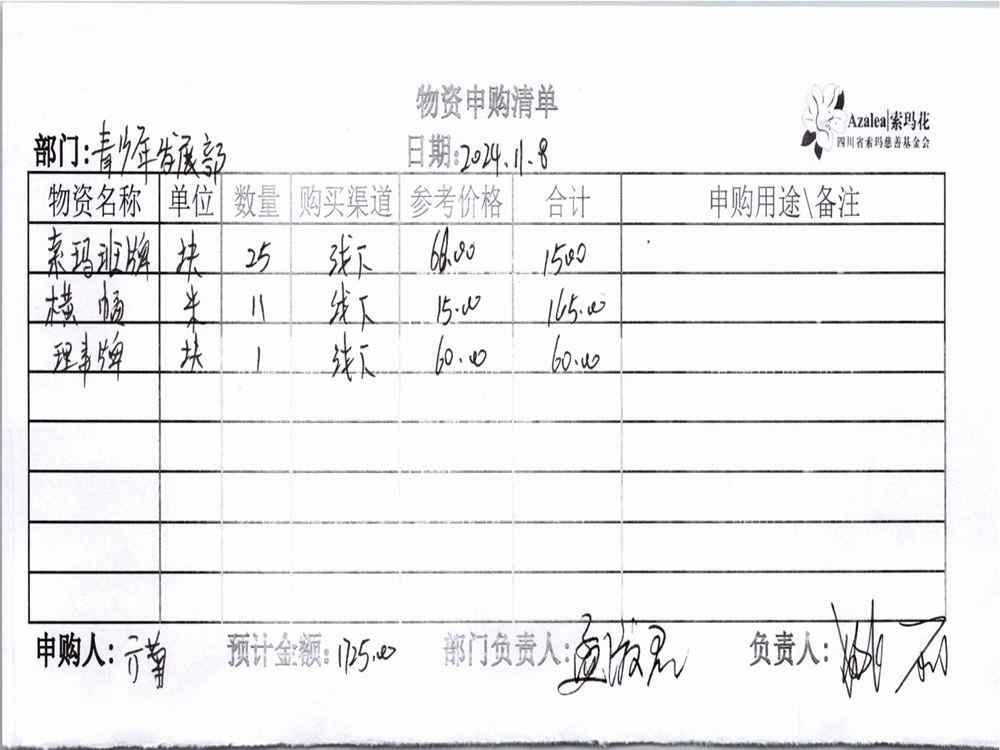 物资申购清单
Azalea|索玛花
四川省索玛慈善基金会
部门:青少年发展部 日期:2024.11.8
物资名称 单位 数量 购买渠道 参考价格 合计 申购用途\备注
索玛班牌 块 25 线下 1500
横幅 米 11 线下 15.00 165.00
理事牌 块 1 线下 60.00 60.00
申购人: 预计金额:1725.00 部门负责人: 负责人: